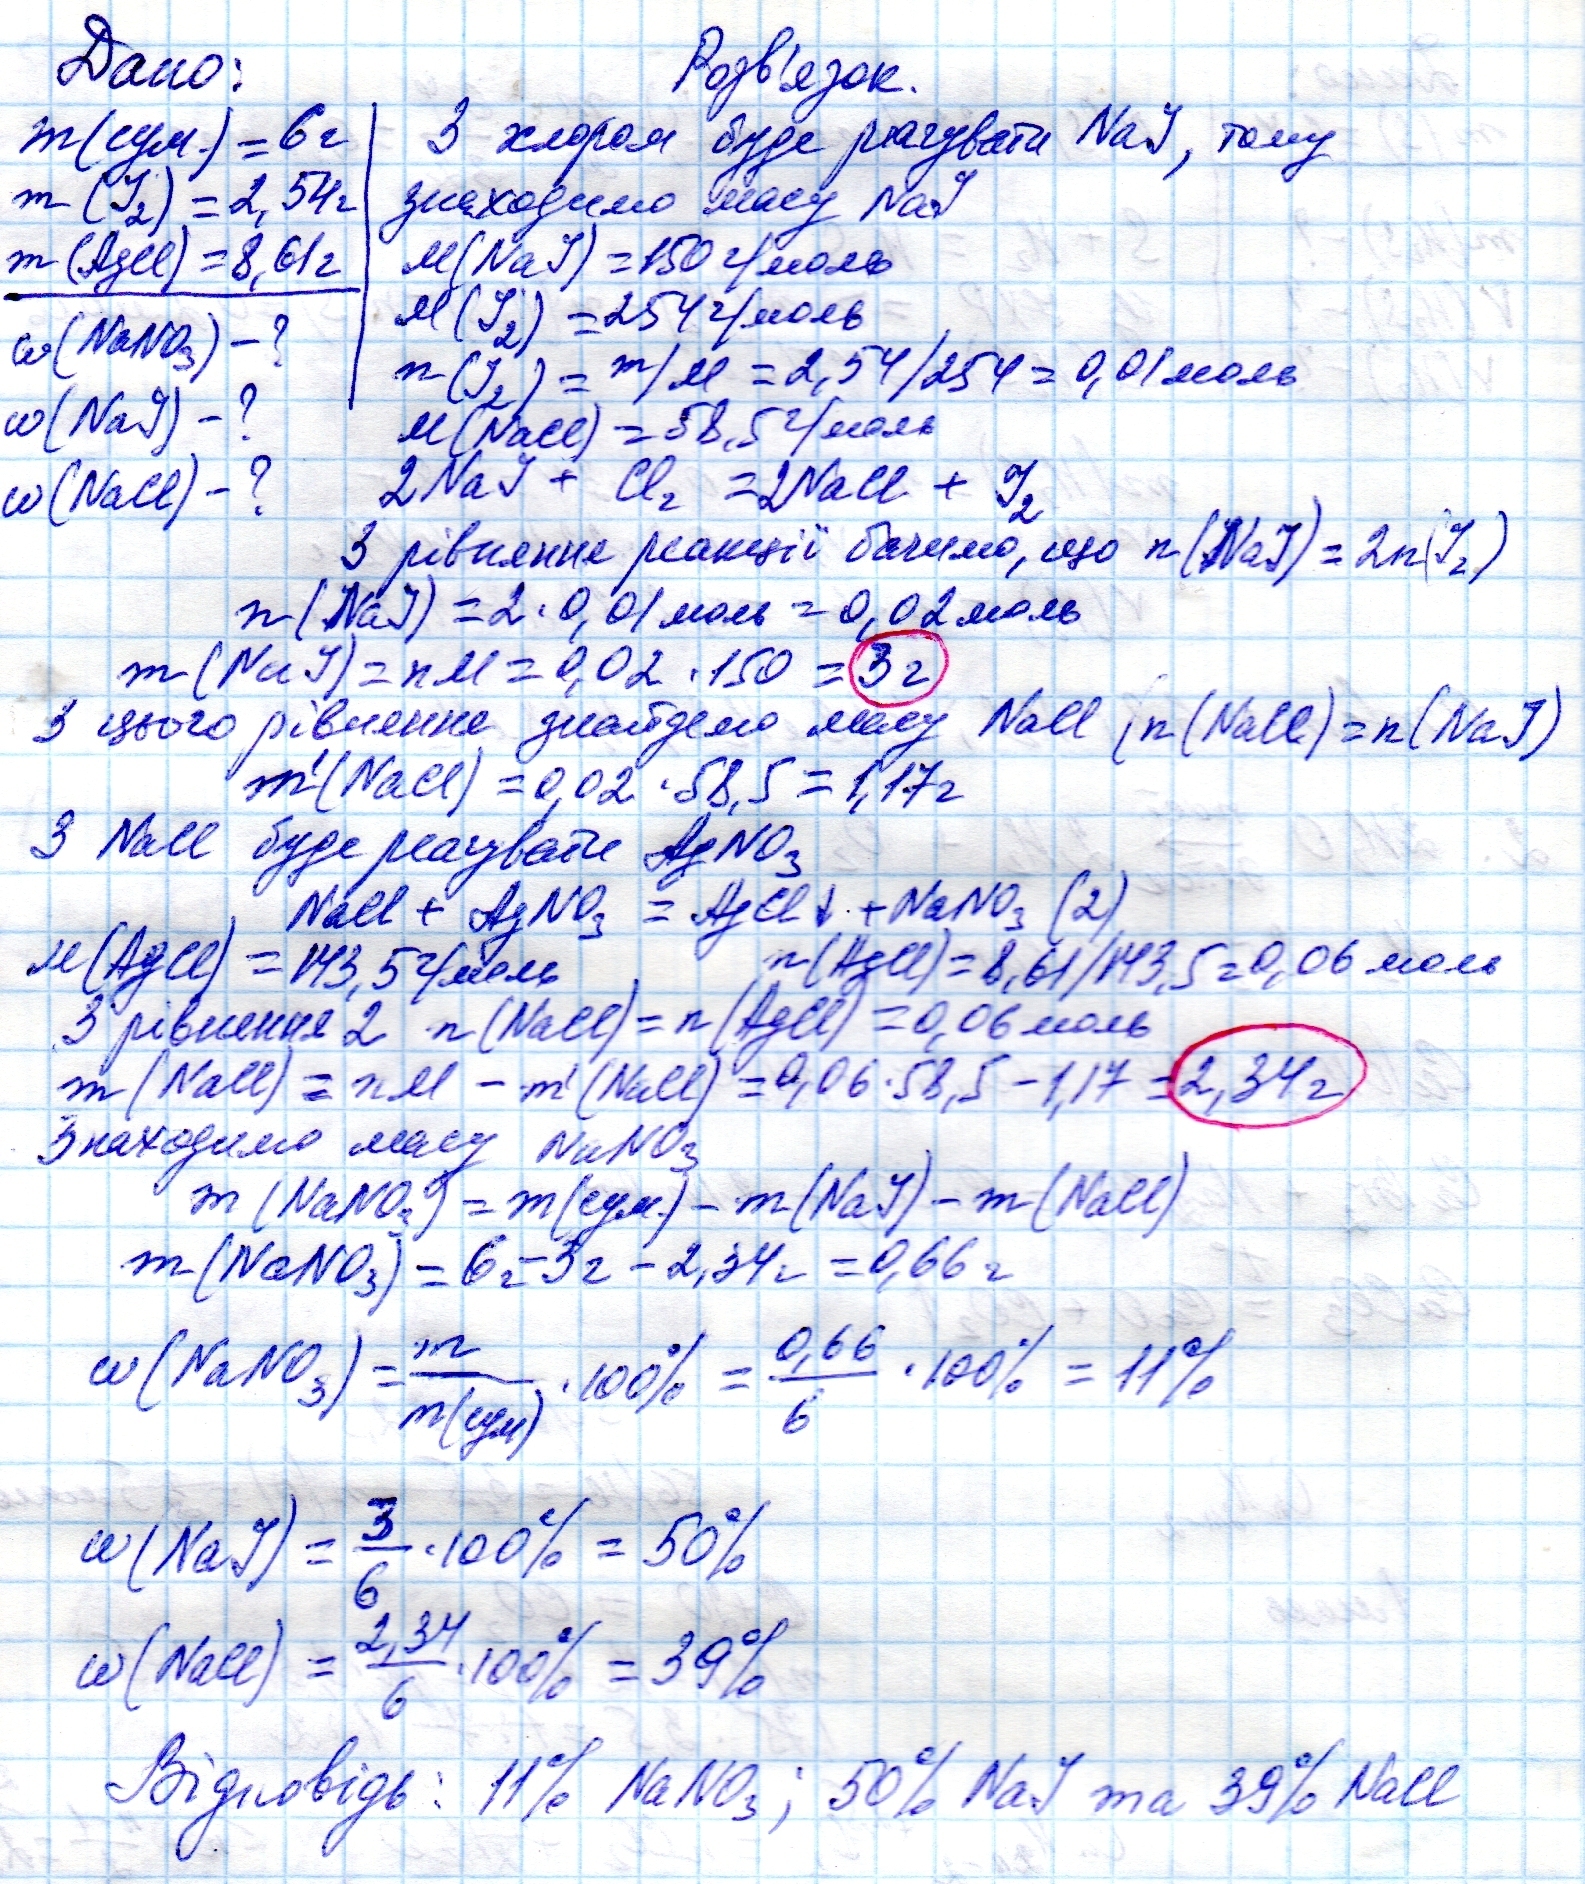 Дано:
Розв'язок.
m(сум.) = 6г
m(J₂) = 2,54г
m(AgCl) = 8,61г
ω(NaNO₃) - ?
ω(NaJ) - ?
ω(NaCl) - ?
З хлором буде реагувати NaJ, тому
знаходимо масу NaJ
M(NaJ) = 150 г/моль
M(J₂) = 254 г/моль
n(J₂) = m/M = 2,54/254 = 0,01 моль
M(NaCl) = 58,5 г/моль
2NaJ + Cl₂ = 2NaCl + J₂
З рівняння реакції бачимо, що n(NaJ) = 2n(J₂)
n(NaJ) = 2·0,01 моль = 0,02 моль
m(NaJ) = nM = 0,02·150 = 3г
З цього рівняння знайдемо масу NaCl (n(NaCl) = n(NaJ)
m'(NaCl) = 0,02·58,5 = 1,17г
З NaCl буде реагувати AgNO₃
NaCl + AgNO₃ = AgCl↓ + NaNO₃ (2)
M(AgCl) = 143,5 г/моль n(AgCl) = 8,61/143,5 = 0,06 моль
З рівняння 2 n(NaCl) = n(AgCl) = 0,06 моль
m(NaCl) = nM - m'(NaCl) = 0,06·58,5 - 1,17 = 2,34г
Знаходимо масу NaNO₃
m(NaNO₃) = m(сум.) - m(NaJ) - m(NaCl)
m(NaNO₃) = 6г - 3г - 2,34г = 0,66г
ω(NaNO₃) = m/m(сум) · 100% = 0,66/6 · 100% = 11%
ω(NaJ) = 3/6 · 100% = 50%
ω(NaCl) = 2,34/6 · 100% = 39%
Відповідь: 11% NaNO₃; 50% NaJ та 39% NaCl